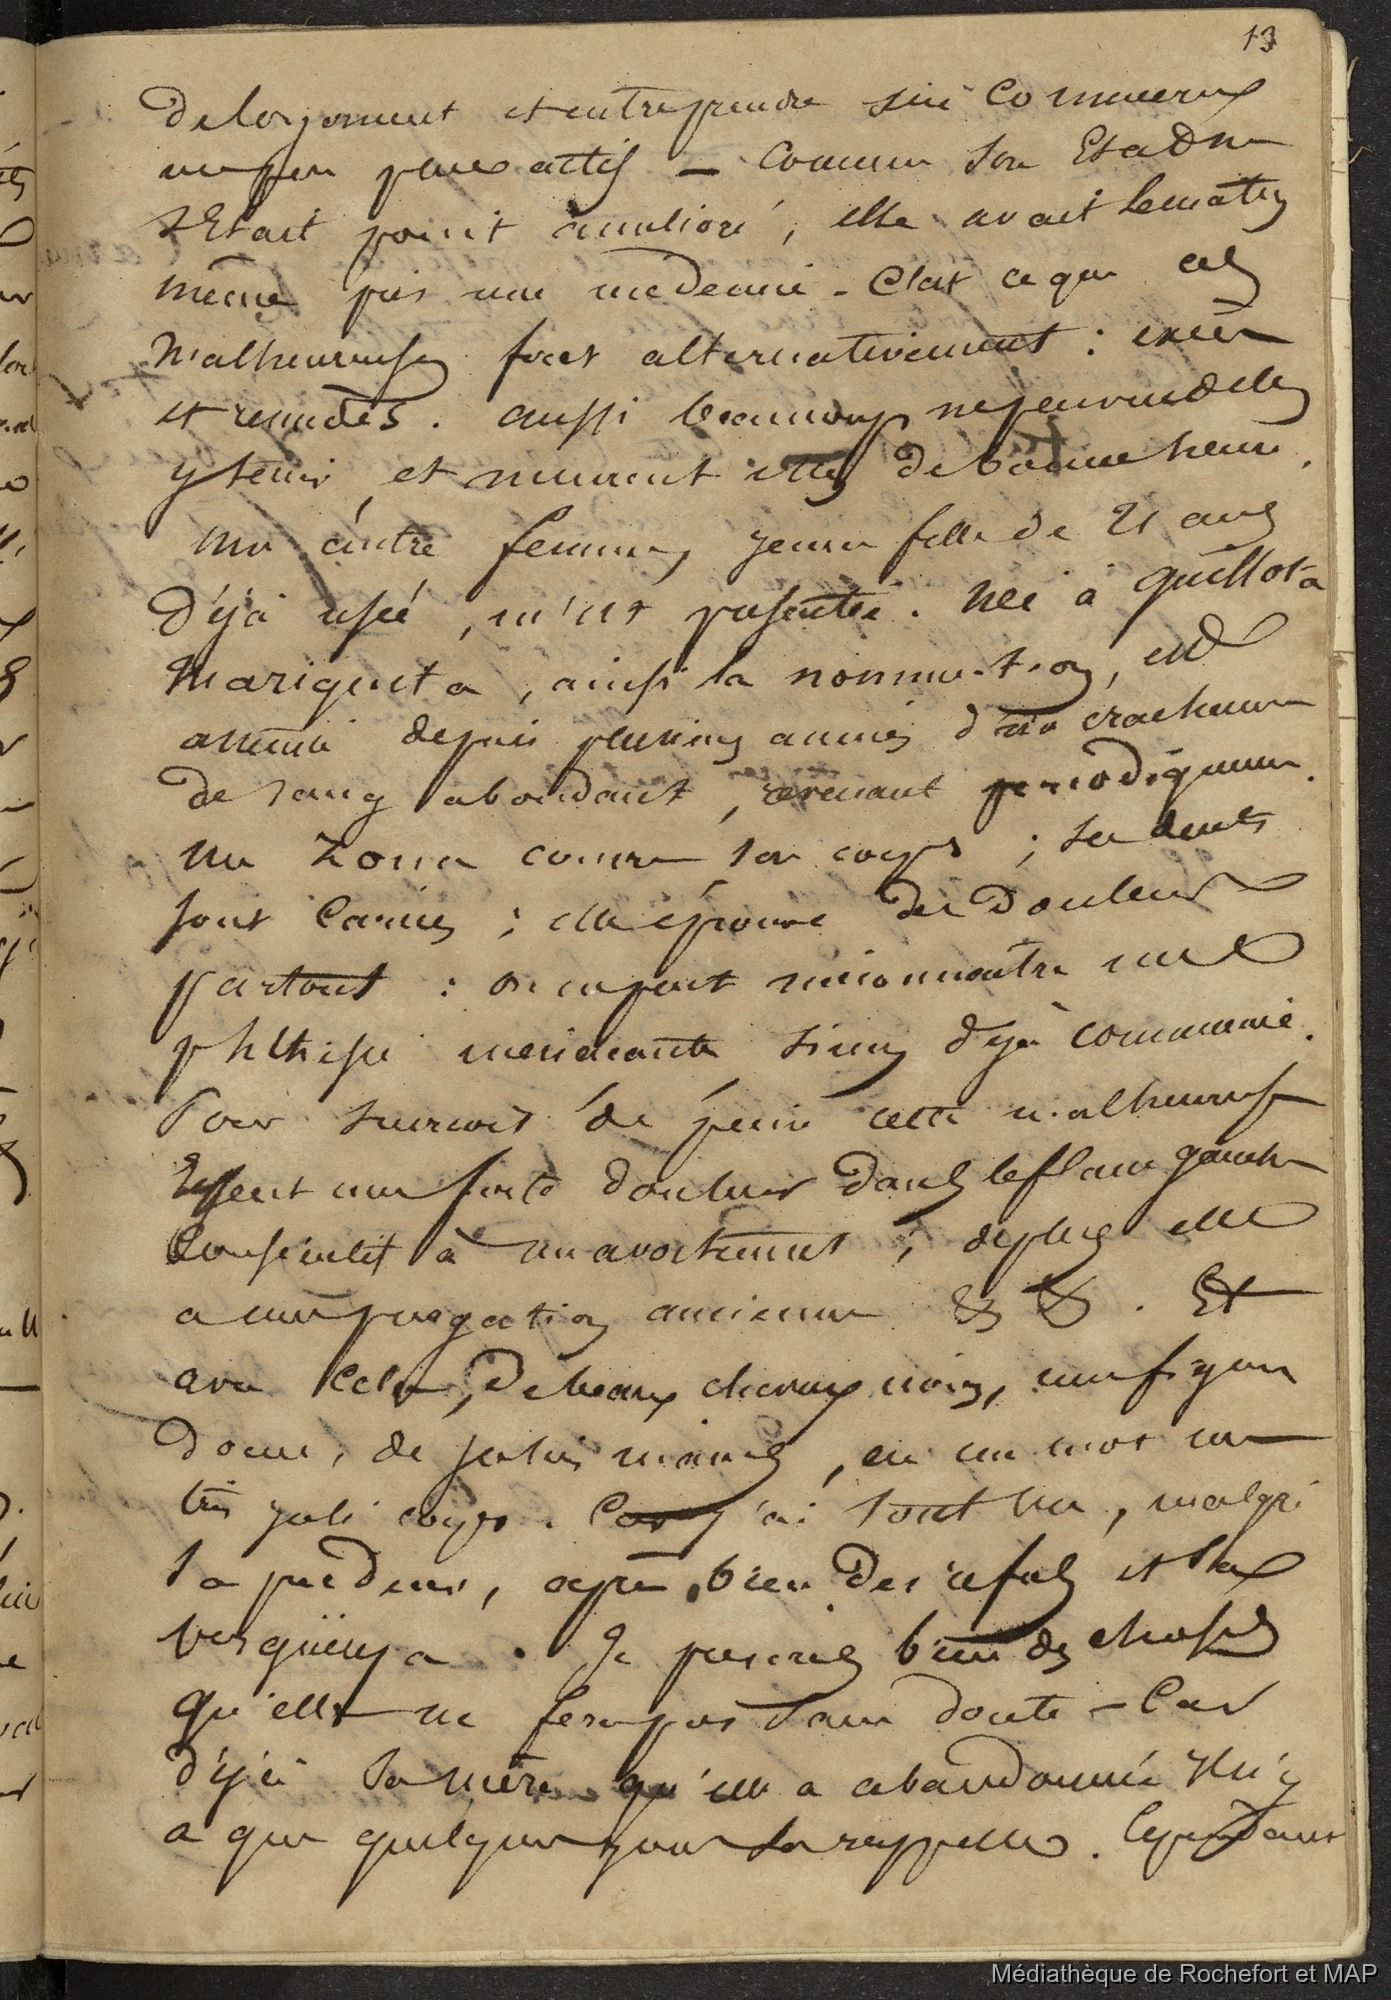 13
de logement et entreprendre son commerce
un peu plus actif – Comme son Etat ne
s'Etait point amélioré, elle avait le matin
même pris une médecine. C'est ce que ces
malheureuses font alternativement : excès
et remèdes. aussi beaucoup ne peuvent elles
y tenir et meurent elles de bonne heure.
Une autre femme, jeune fille de 21 ans
déjà usée, m'est présentée. Née à Quillota
Mariquita, ainsi la nomme-t-on, est
atteinte depuis plusieurs années d'un crachement
de sang abondant, revenant périodiquement.
Un Zona couvre son corps ; ses dents
sont Cariées ; elle éprouve des Douleurs
partout : on ne peut méconnaître une
phthisie menaçante sinon déjà commencée.
Pour surcroît de peine cette malheureuse
Ressent une forte douleur dans le flanc gauche
Consécutif à un avortement ; de plus elle
a une purgation ancienne & &. Et
avec Cela, de beaux cheveux noirs, une figure
douce, de jolies mains, en un mot un
très joli corps. Car j'ai tout vu, malgré
sa pudeur, après bien des refus et la
verguenza. Je prescris bien des choses
qu'elle ne fera pas sans doute – Car
déjà sa mère qu'elle a abandonnée il n'y
a que quelques jours la rappelle. Cependant
Médiathèque de Rochefort et MAP